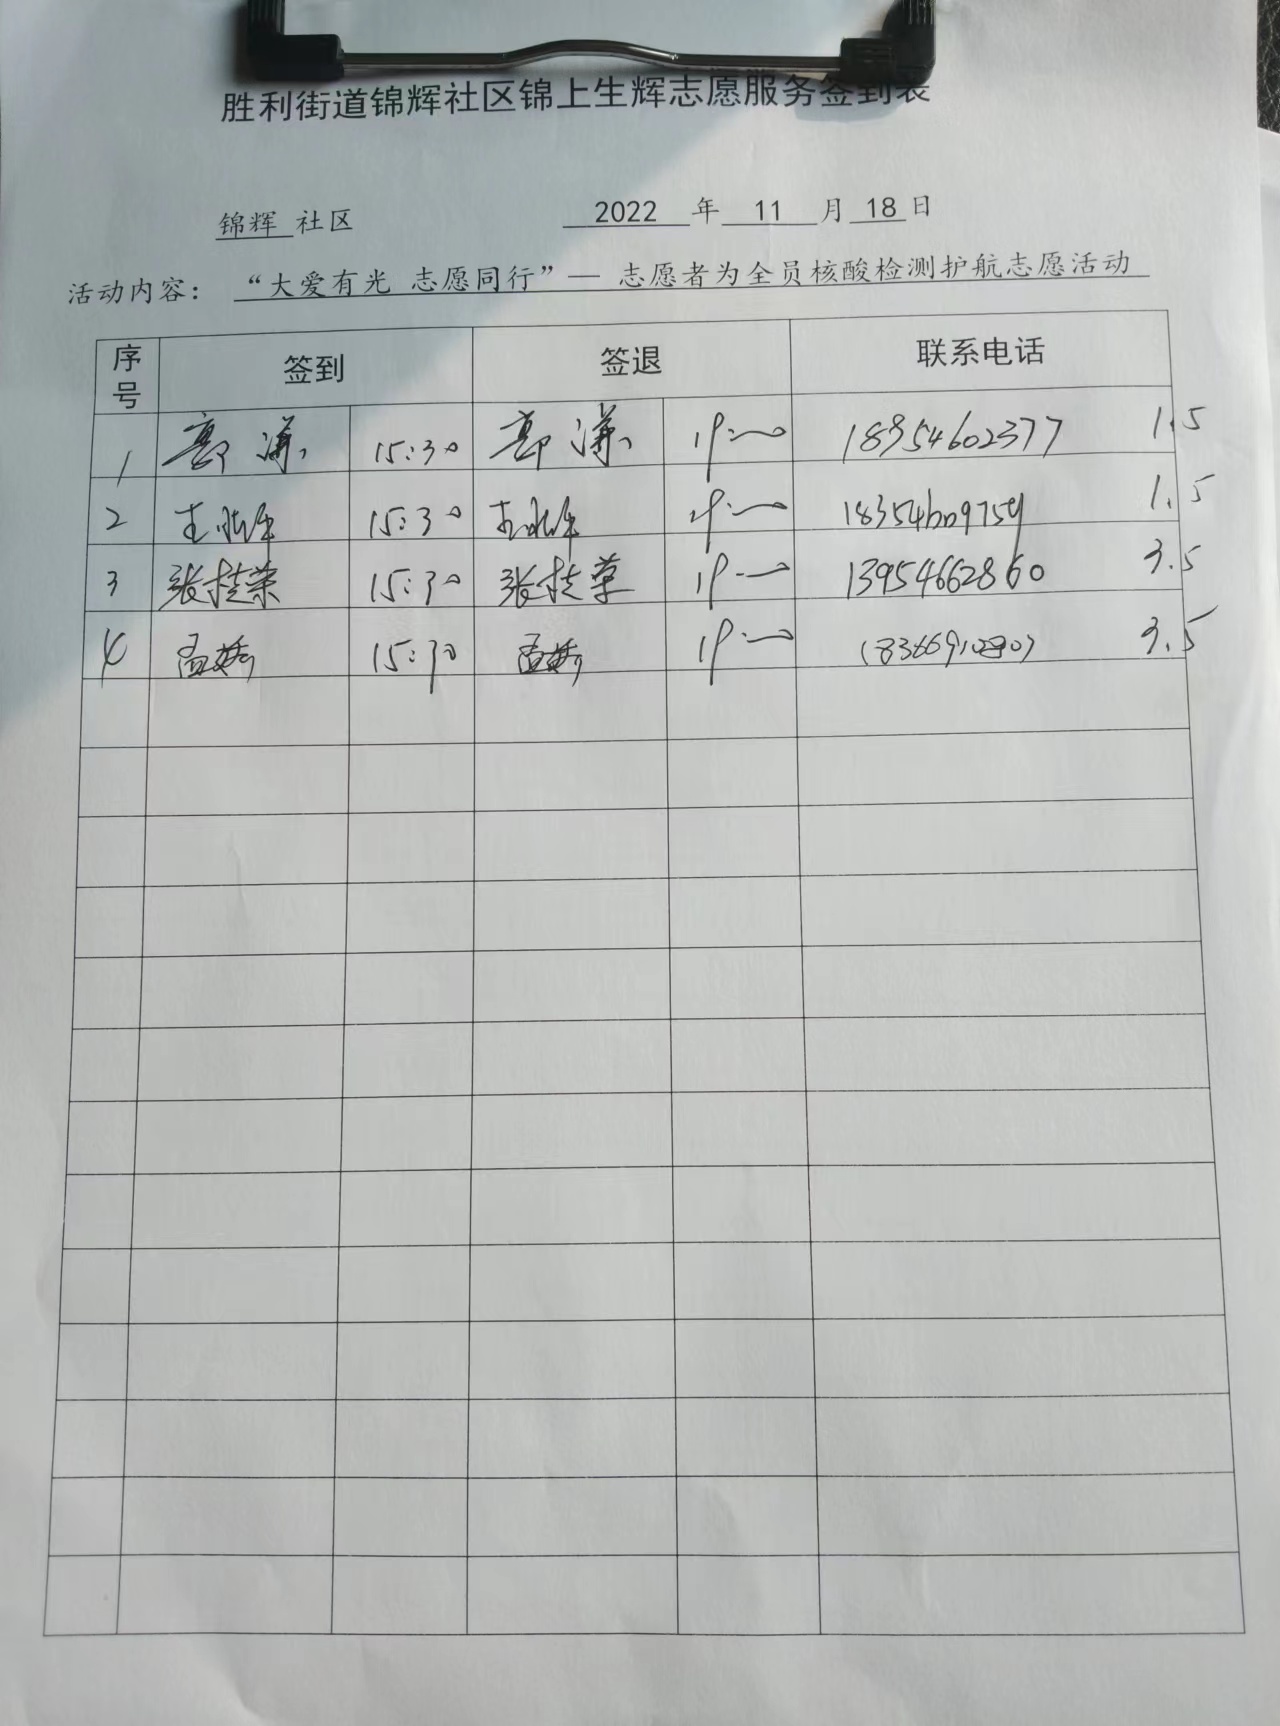 胜利街道锦辉社区锦上生辉志愿服务签到表
锦辉 社区 2022 年 11 月 18 日
活动内容: “大爱有光 志愿同行”— 志愿者为全员核酸检测护航志愿活动
序号 签到 签退 联系电话
1 15:30 18954602377 1.5
2 15:30 1.5
3 张桂荣 15:30 张桂荣 13954662860 3.5
4 孟娇 15:30 孟娇 3.5